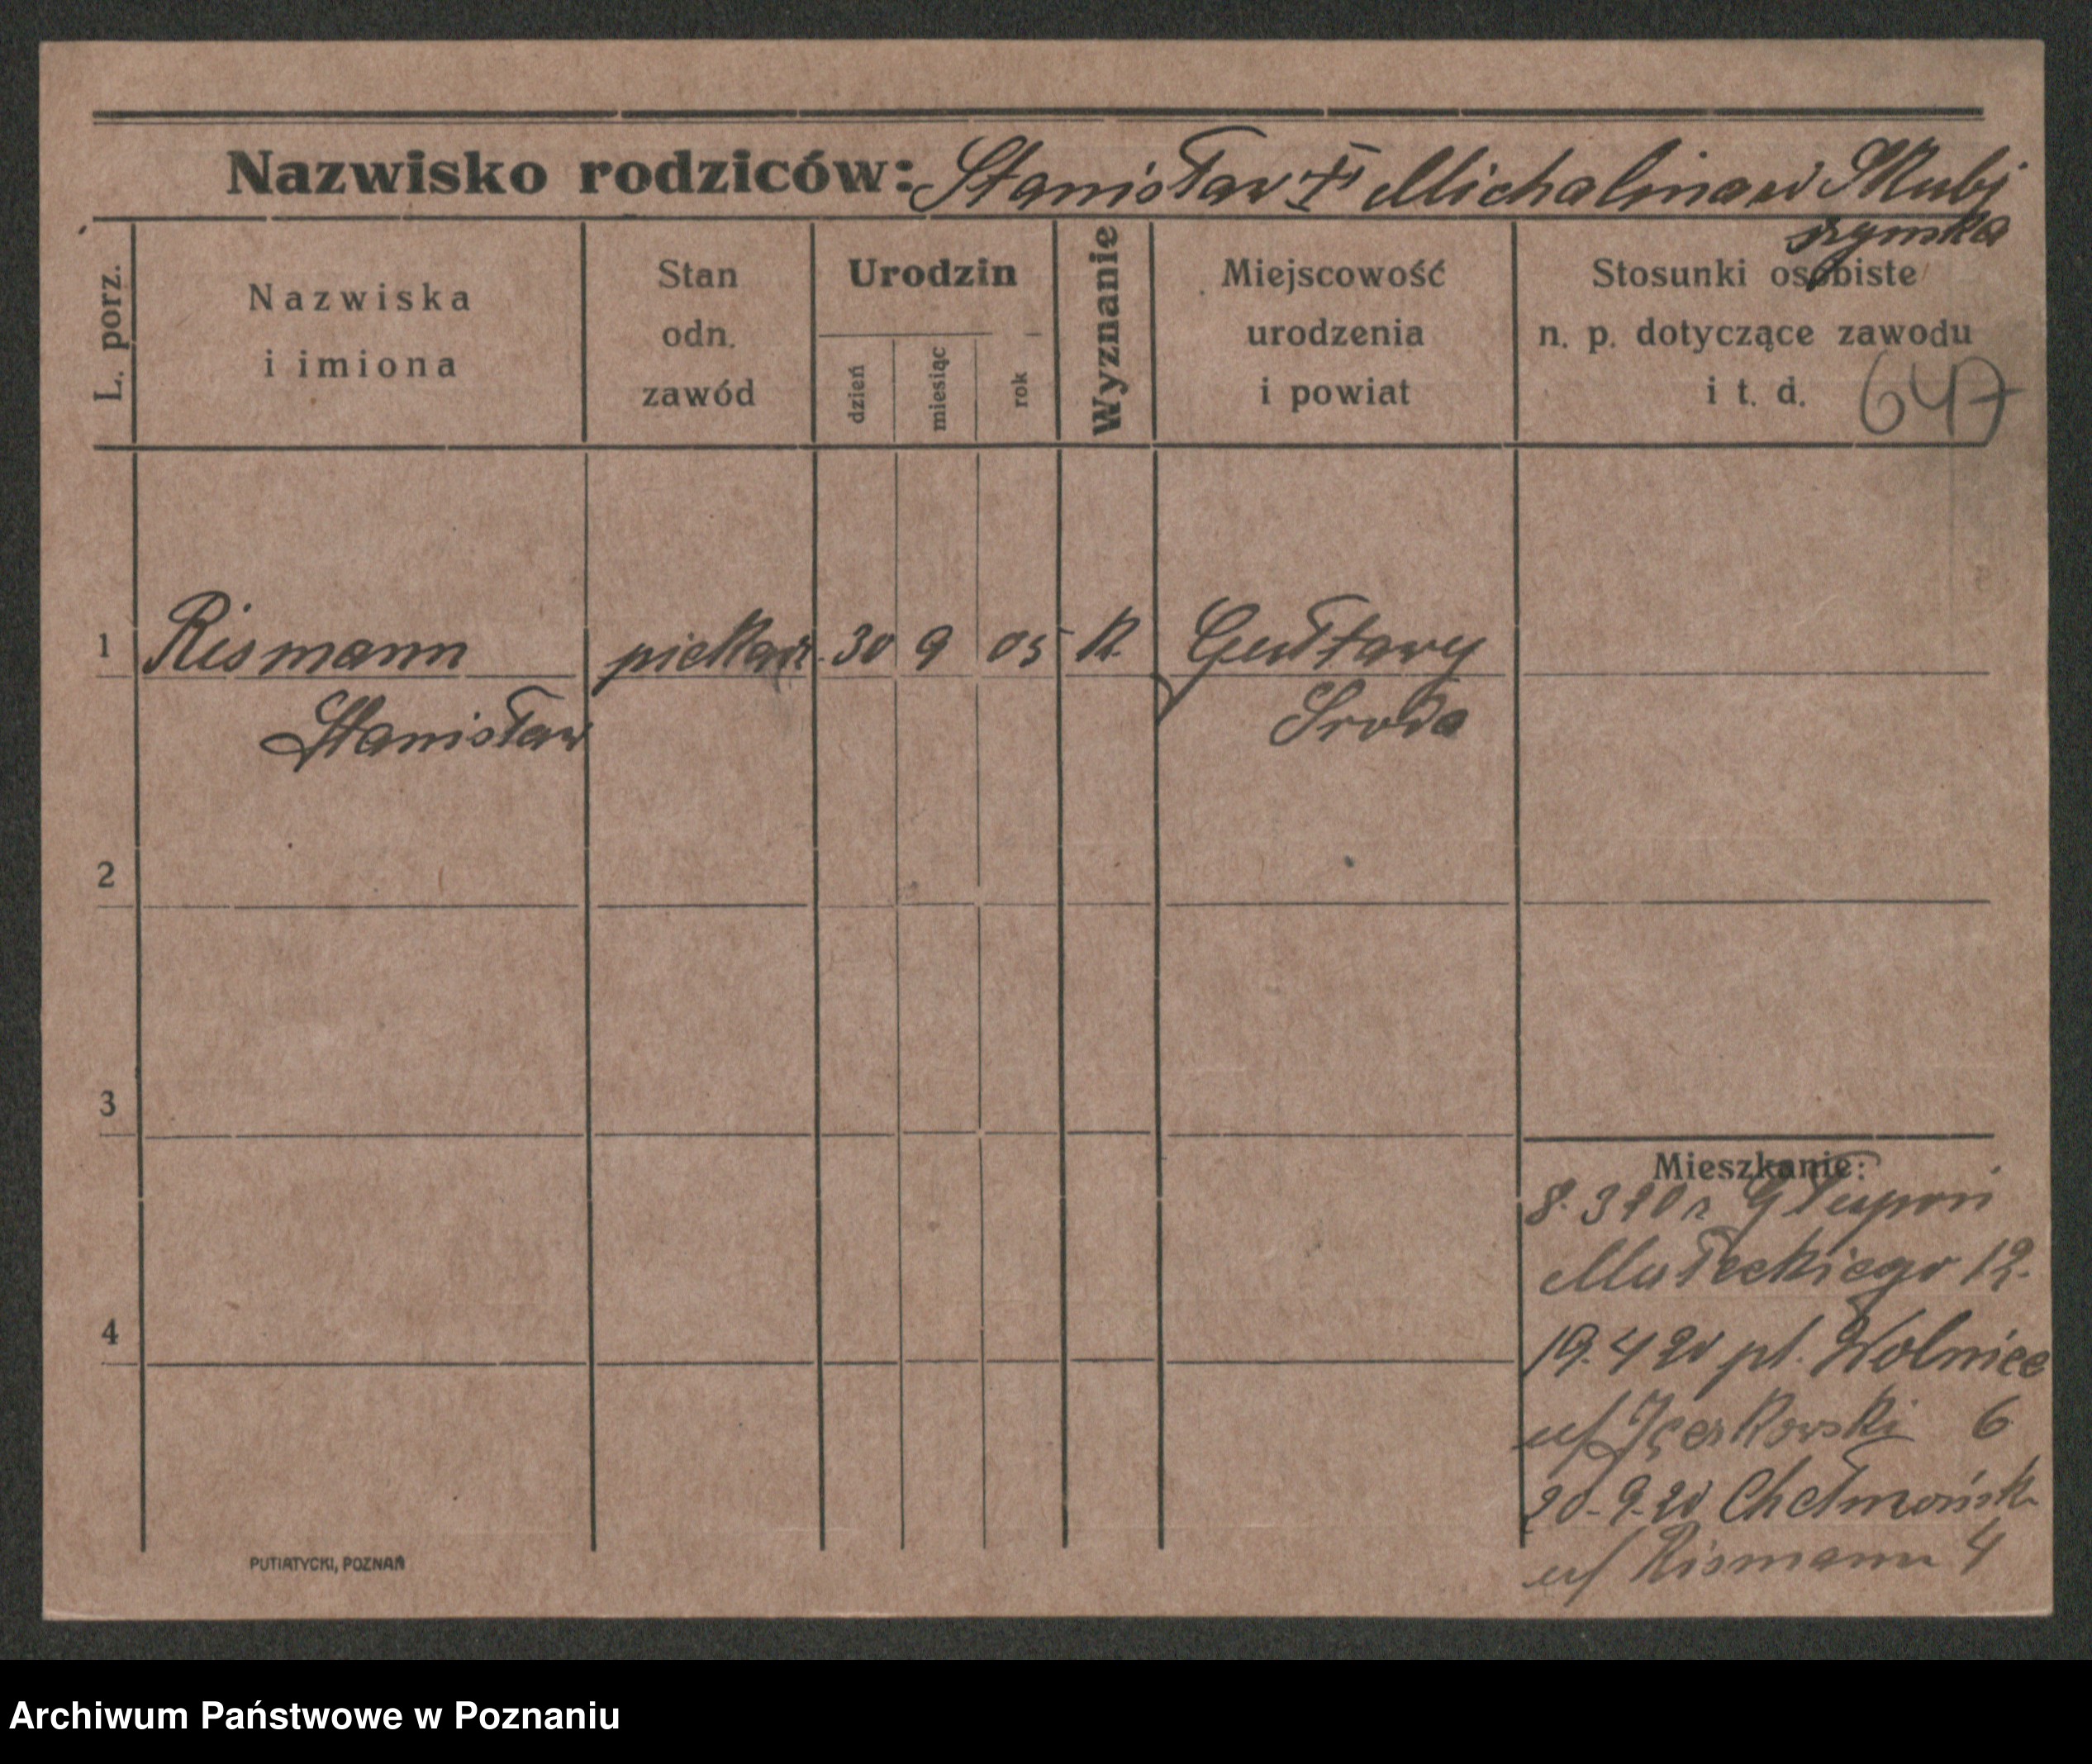 Nazwisko rodziców: Stanisław Michalina Skubi
szynska
L. porz.
Nazwiska
i imiona
Stan
odn.
zawód
Urodzin
dzień
miesiąc
rok
Wyznanie
Miejscowość
urodzenia
i powiat
Stosunki osobiste
n. p. dotyczące zawodu
i t. d. 647
1 Rismann piekarz 30 9 05 K. Gułtowy
Stanisław Sroda
2
3
4
Mieszkanie:
8. 3 20 r
12.
19. 4 20 pl. Wolnice
u/ 6
20-9-20 Chełmońsk
u/ Rismann 4
PUTIATYCKI, POZNAŃ
Archiwum Państwowe w Poznaniu